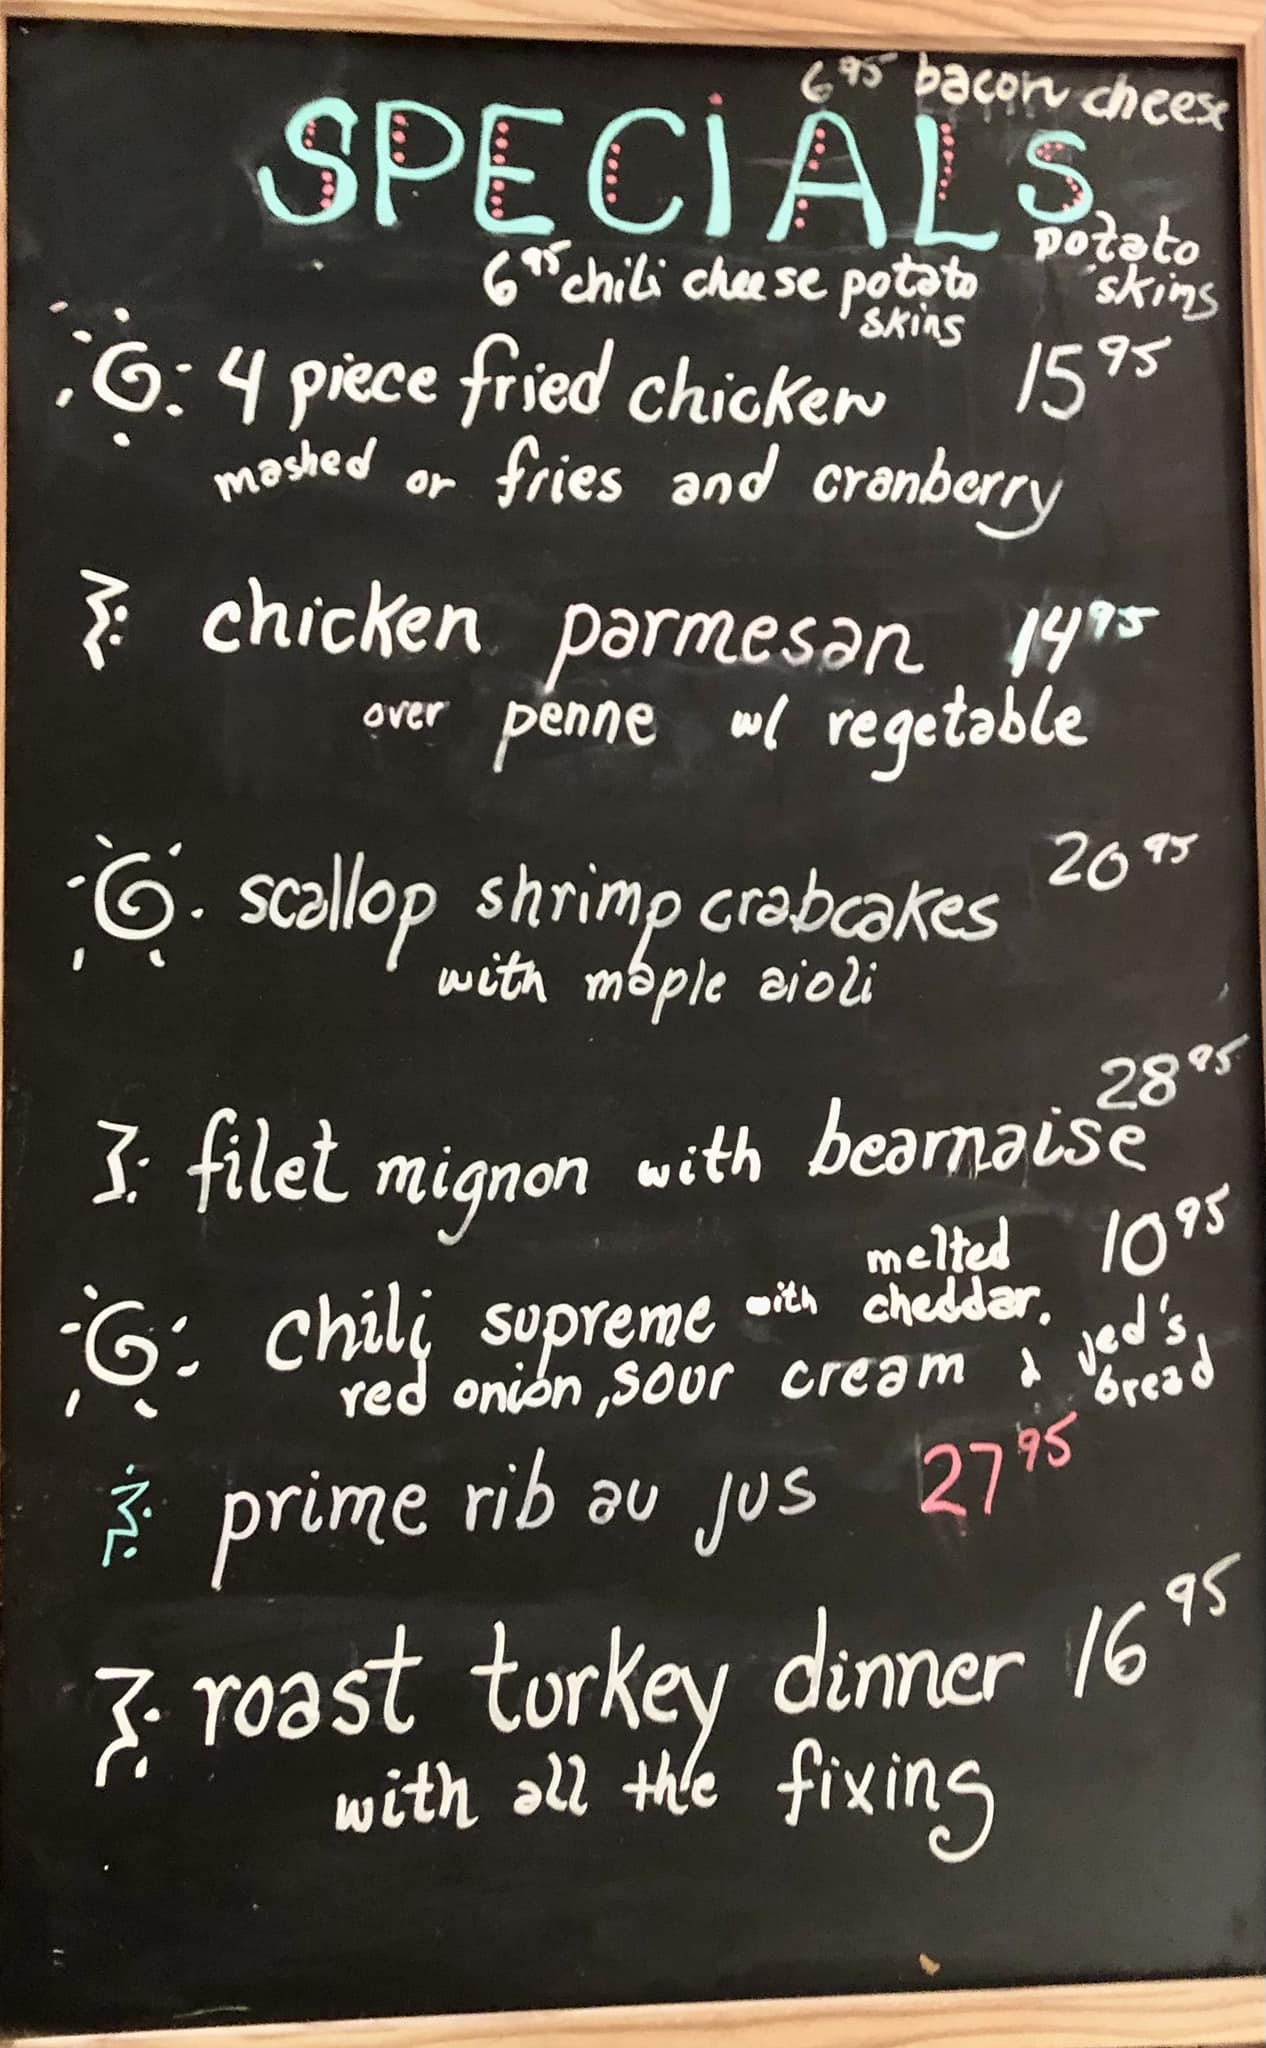 6 95 bacon cheese
SPECIALS
potato
skins
6 95 chili cheese potato
skins
4 piece fried chicken 15 95
mashed or fries and cranberry
chicken parmesan 14 95
over penne w/ vegetable
scallop shrimp crabcakes 20 95
with maple aioli
28 95
filet mignon with bearnaise
melted 10 95
chili supreme with cheddar, Jed's
red onion, sour cream & bread
prime rib au jus 27 95
roast turkey dinner 16 95
with all the fixing